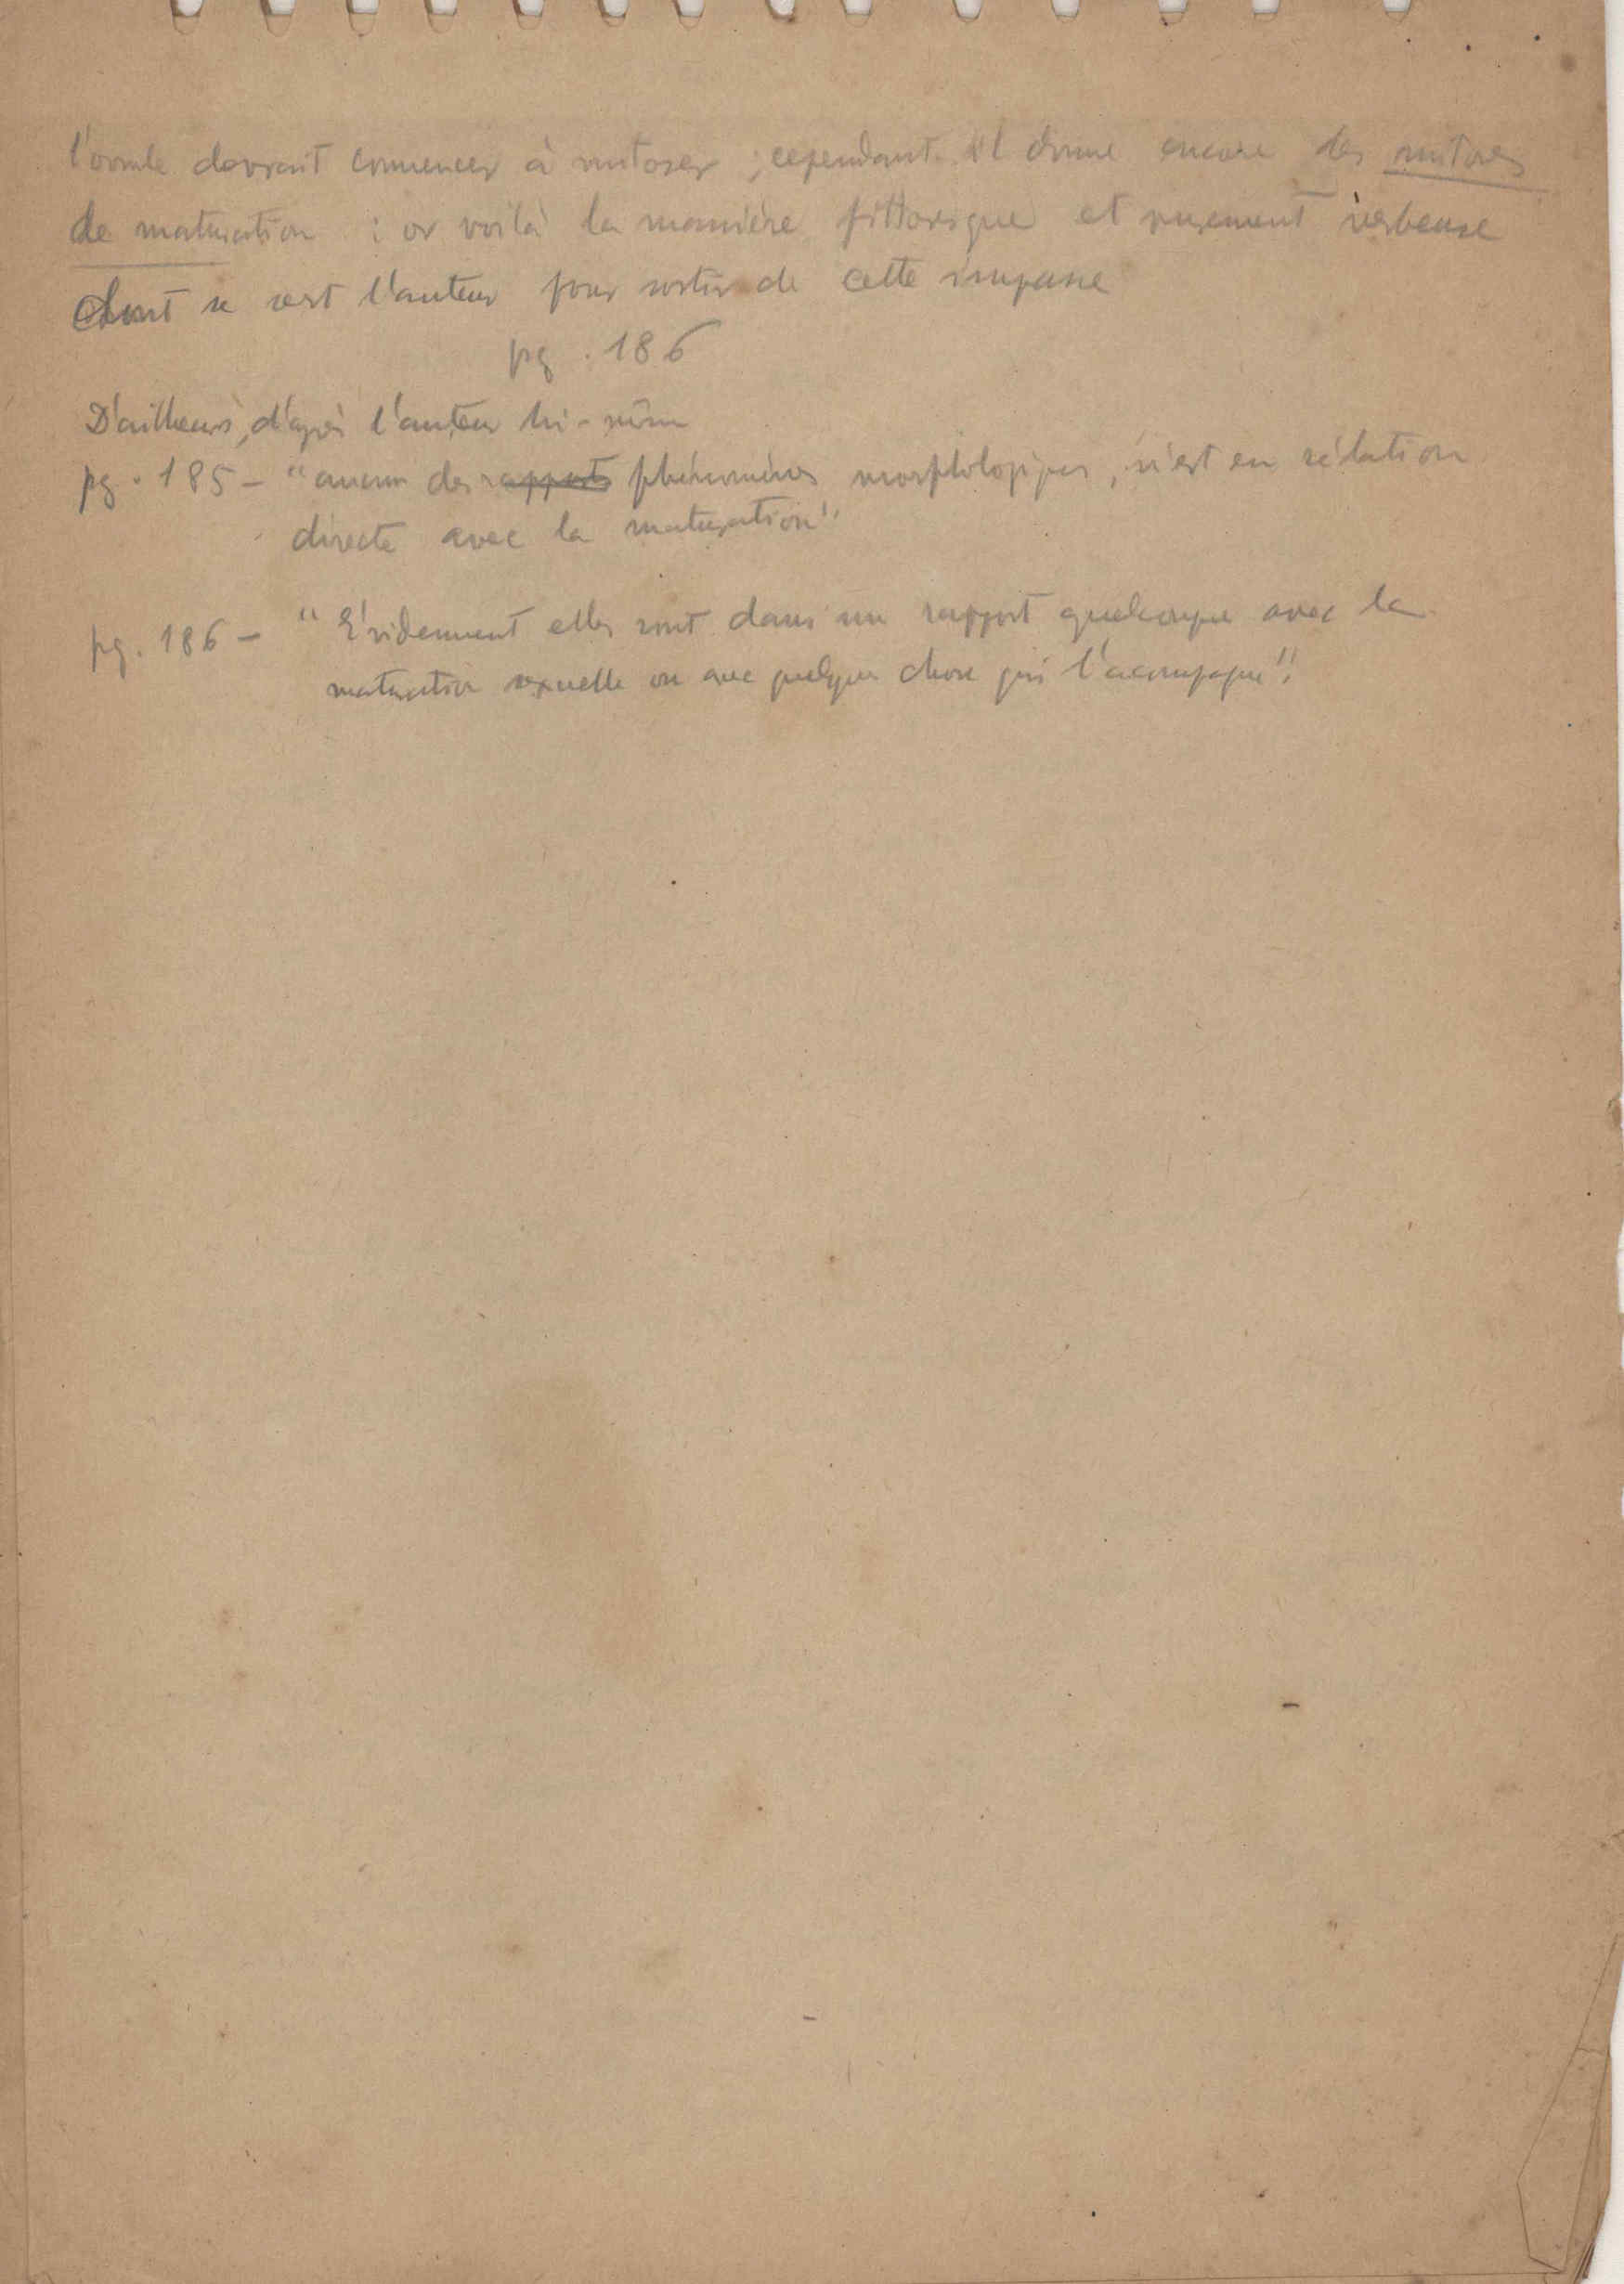 l'ovule devrait commencer à mitoser ; cependant il donne encore des mitoses
de maturation : or voilà la manière pittoresque et purement verbeuse
dont se sert l'auteur pour sortir de cette impasse
pg . 186
D'ailleurs, d'après l'auteur lui-même
pg . 185 - "aucun des rapports phénomènes morphologiques, n'est en rélation
directe avec la maturation"
pg. 186 - "Evidemment elles sont dans un rapport quelconque avec la
maturation sexuelle ou avec quelque chose qui l'acompagne"!